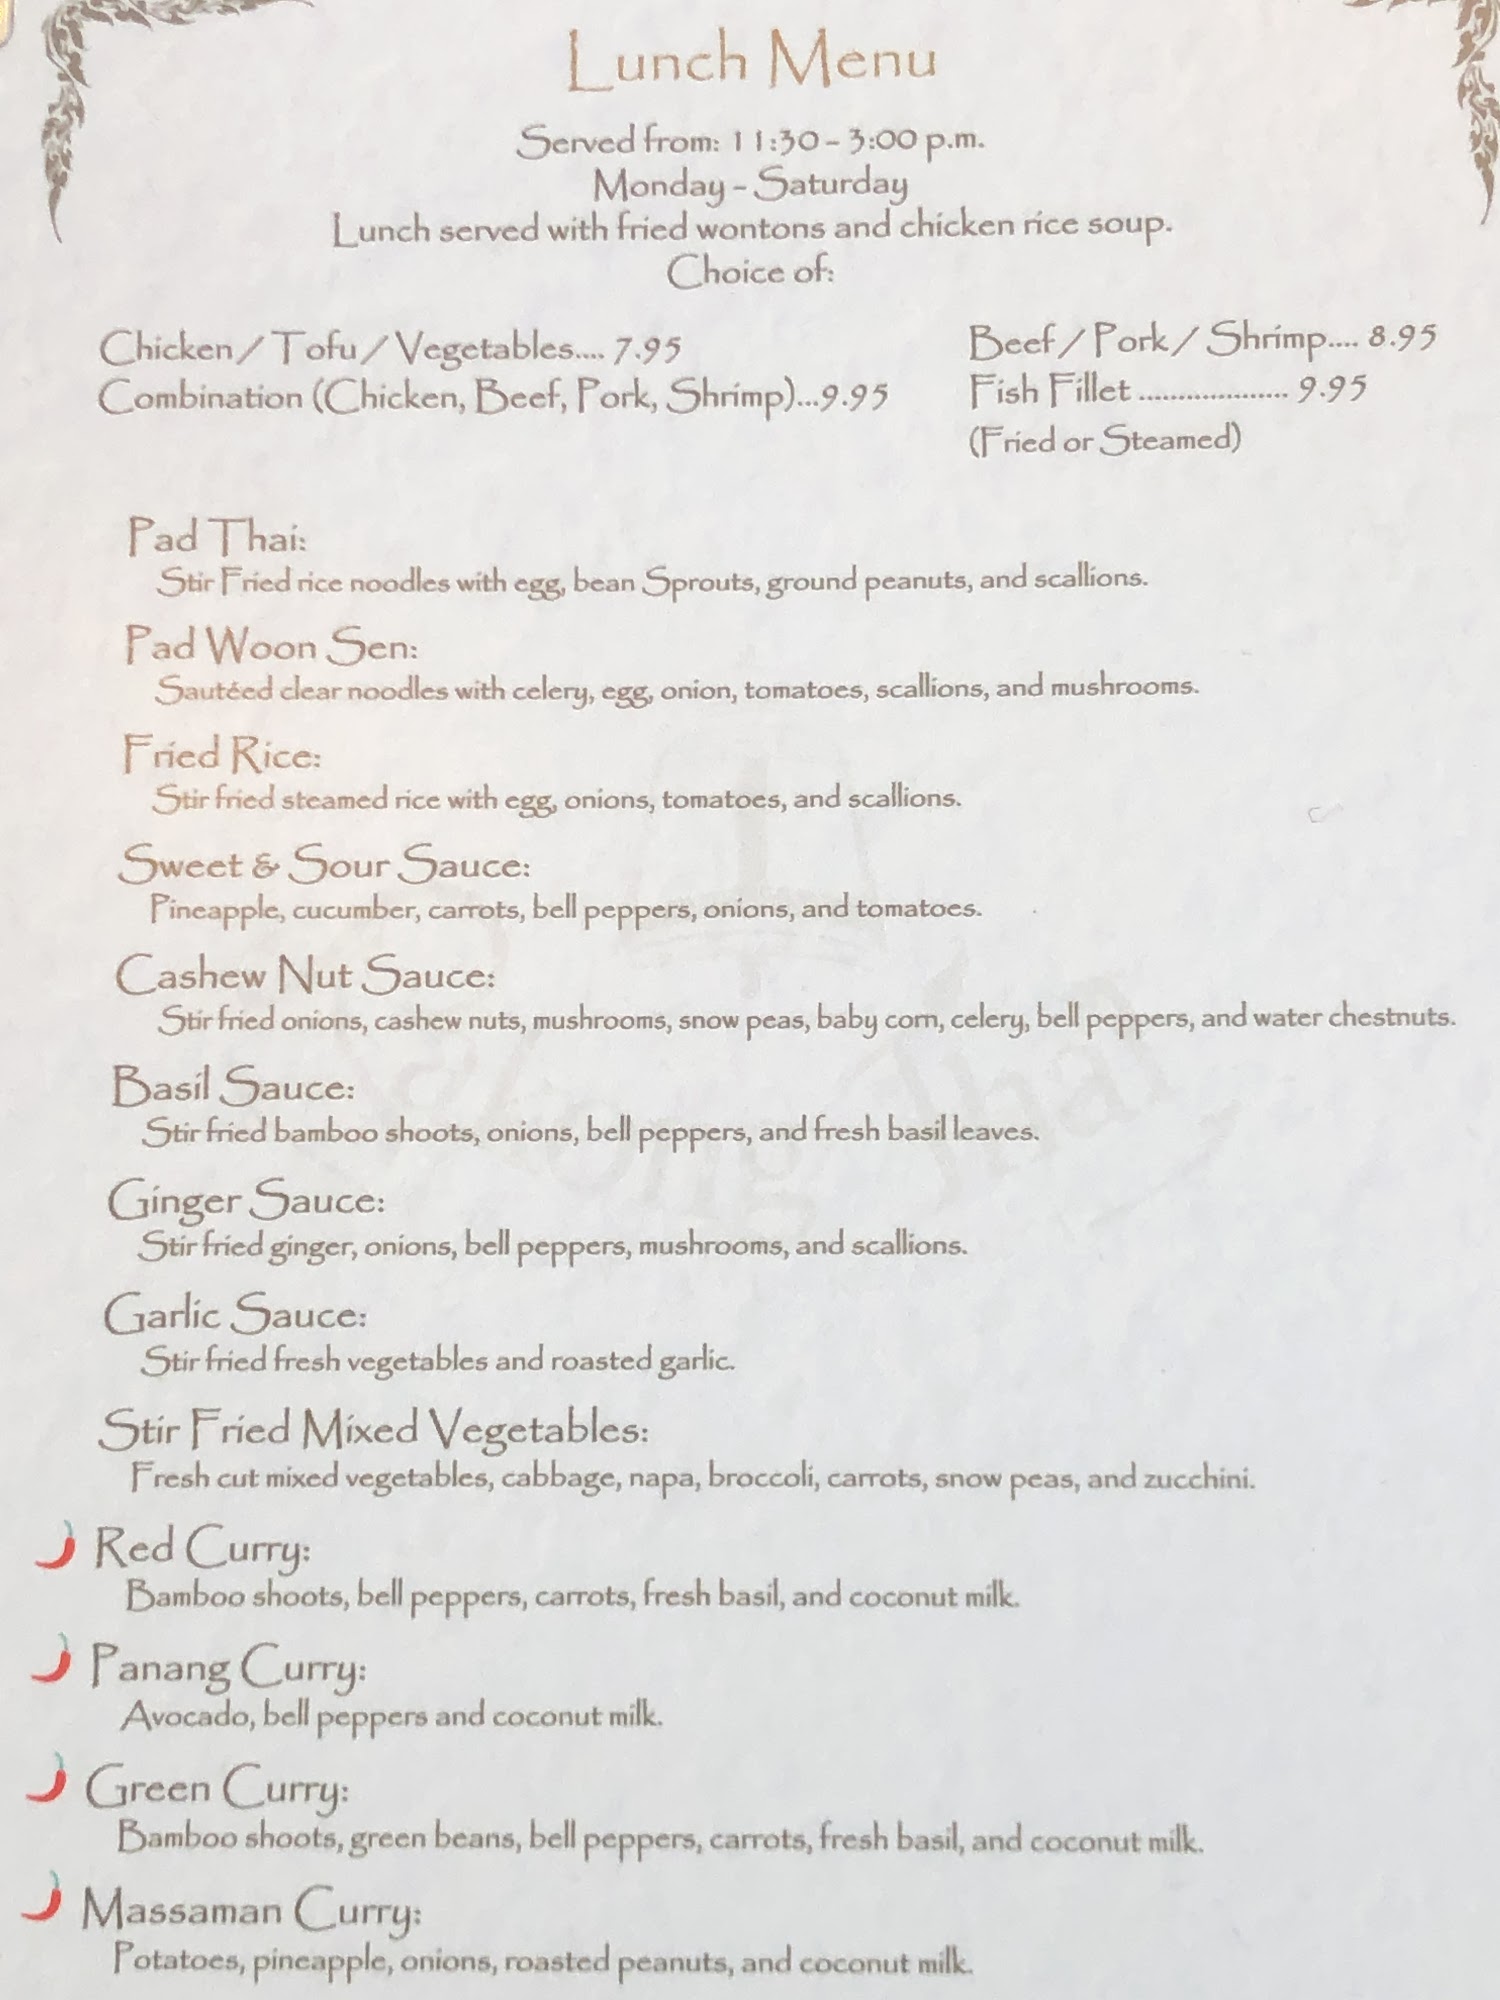 Lunch Menu
Served from: 11:30 - 3:00 p.m.
Monday - Saturday
Lunch served with fried wontons and chicken rice soup.
Choice of:
Chicken / Tofu / Vegetables.... 7.95
Combination (Chicken, Beef, Pork, Shrimp)...9.95
Beef / Pork / Shrimp.... 8.95
Fish Fillet ................... 9.95
(Fried or Steamed)
Pad Thai:
Stir Fried rice noodles with egg, bean Sprouts, ground peanuts, and scallions.
Pad Woon Sen:
Sautéed clear noodles with celery, egg, onion, tomatoes, scallions, and mushrooms.
Fried Rice:
Stir fried steamed rice with egg, onions, tomatoes, and scallions.
Sweet & Sour Sauce:
Pineapple, cucumber, carrots, bell peppers, onions, and tomatoes.
Cashew Nut Sauce:
Stir fried onions, cashew nuts, mushrooms, snow peas, baby corn, celery, bell peppers, and water chestnuts.
Basil Sauce:
Stir fried bamboo shoots, onions, bell peppers, and fresh basil leaves.
Ginger Sauce:
Stir fried ginger, onions, bell peppers, mushrooms, and scallions.
Garlic Sauce:
Stir fried fresh vegetables and roasted garlic.
Stir Fried Mixed Vegetables:
Fresh cut mixed vegetables, cabbage, napa, broccoli, carrots, snow peas, and zucchini.
Red Curry:
Bamboo shoots, bell peppers, carrots, fresh basil, and coconut milk.
Panang Curry:
Avocado, bell peppers and coconut milk.
Green Curry:
Bamboo shoots, green beans, bell peppers, carrots, fresh basil, and coconut milk.
Massaman Curry:
Potatoes, pineapple, onions, roasted peanuts, and coconut milk.